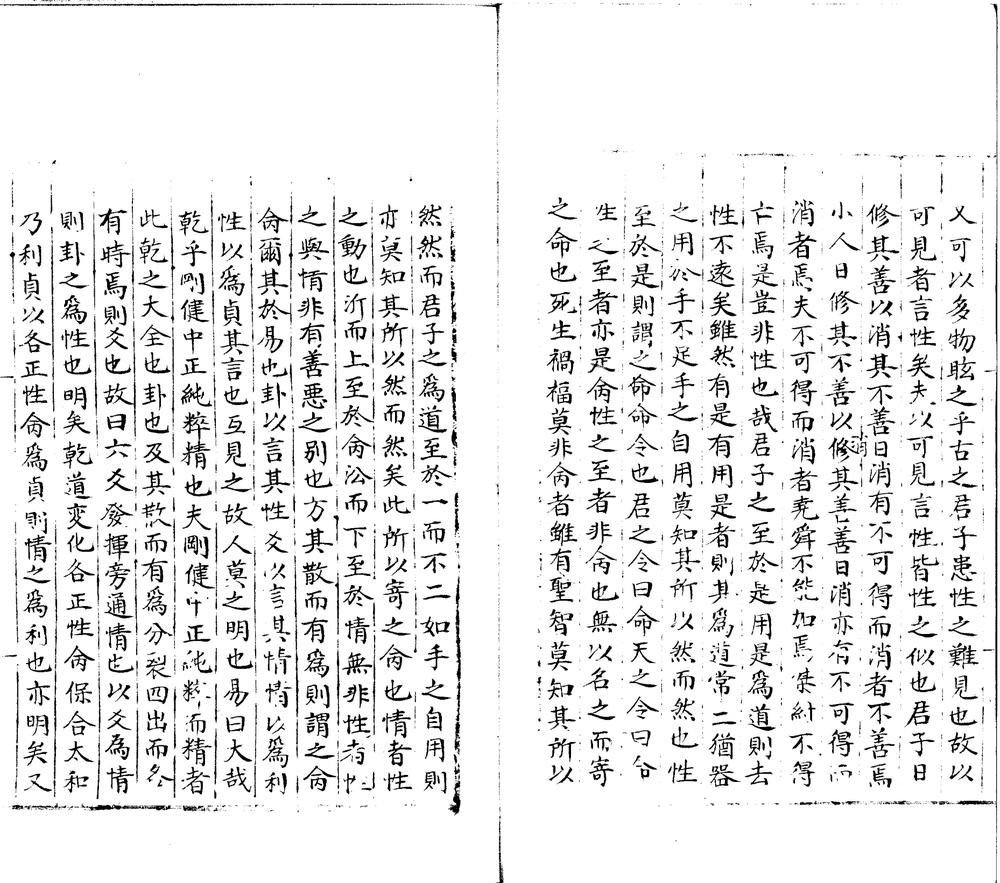 又可以多物眩之乎古之君子患性之難見也故以
可見者言性矣夫以可見言性皆性之似也君子日
修其善以消其不善日消有不可得而消者不善焉
小人日修其不善以修消其善善日消亦有不可得而
消者焉夫不可得而消者堯舜不能加焉桀紂不得
亡焉是豈非性也哉君子之至於是用是爲道則去
性不遠矣雖然有是有用是者則其爲道常二猶器
之用於手不足手之自用莫知其所以然而然也性
至於是則謂之命命令也君之令曰命天之令曰命
性之至者亦是肏性之至者非肏也無以名之而寄
之命也死生禍福莫非肏者雖有聖智莫知其所以
然然而君子之爲道至於一而不二如手之自用則
亦莫知其所以然而然矣此所以寄之肏也情者性
之動也泝而上至於肏沿而下至於情無非性者性
之與情非有善惡之别也方其散而有爲則謂之肏
肏爾其於易也卦以言其性爻以言其情情以爲利
性以爲貞其言也互見之故人莫之明也易曰大哉
乾乎剛健中正純粹精也夫剛健中正純粹而精者
此乾之大全也卦也及其散而有爲分裂四出而各
有時焉則爻也故曰六爻發揮旁通情也以爻爲情
則卦之爲性也明矣乾道変化各正性肏保合太和
乃利貞以各正性肏爲貞則情之爲利也亦明矣又